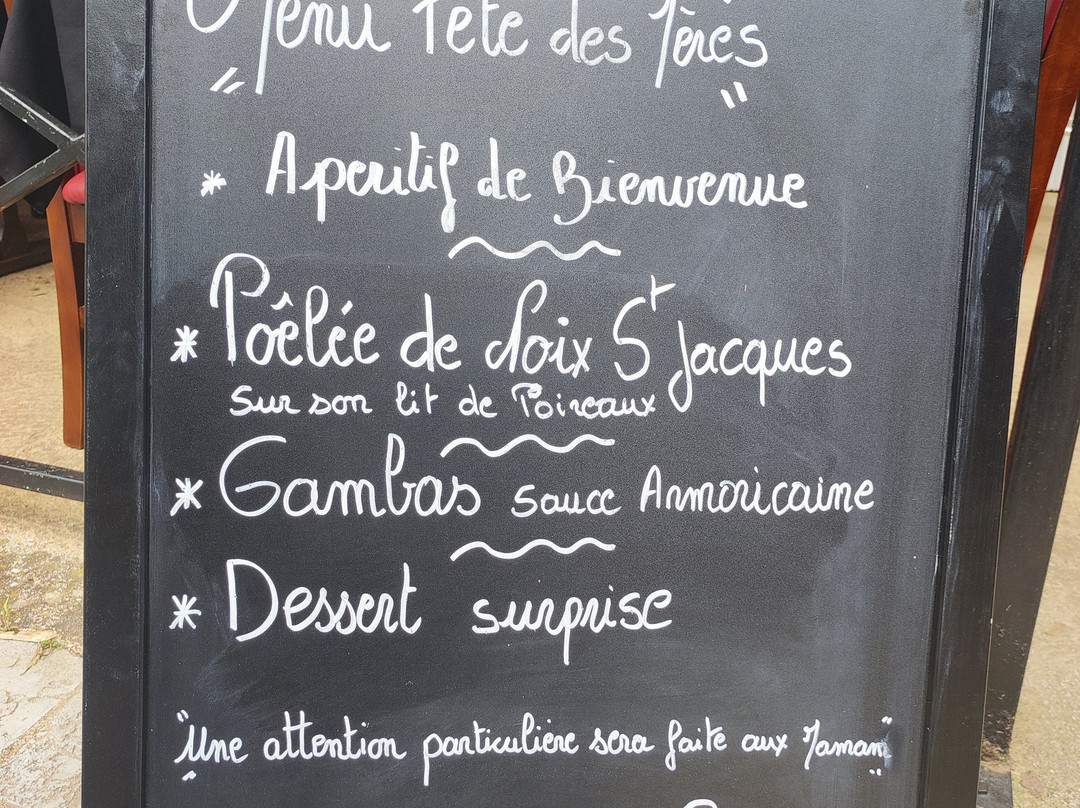 Menu Fête des Mères
* Aperitif de Bienvenue
* Poêlée de Noix St Jacques
Sur son lit de Poireaux
* Gambas sauce Armoricaine
* Dessert surprise
"Une attention particulière sera faite aux Maman"